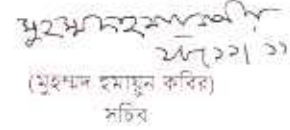 ২৮/১১/১১
(মুহম্মদ হুমায়ুন কবির)
সচিব